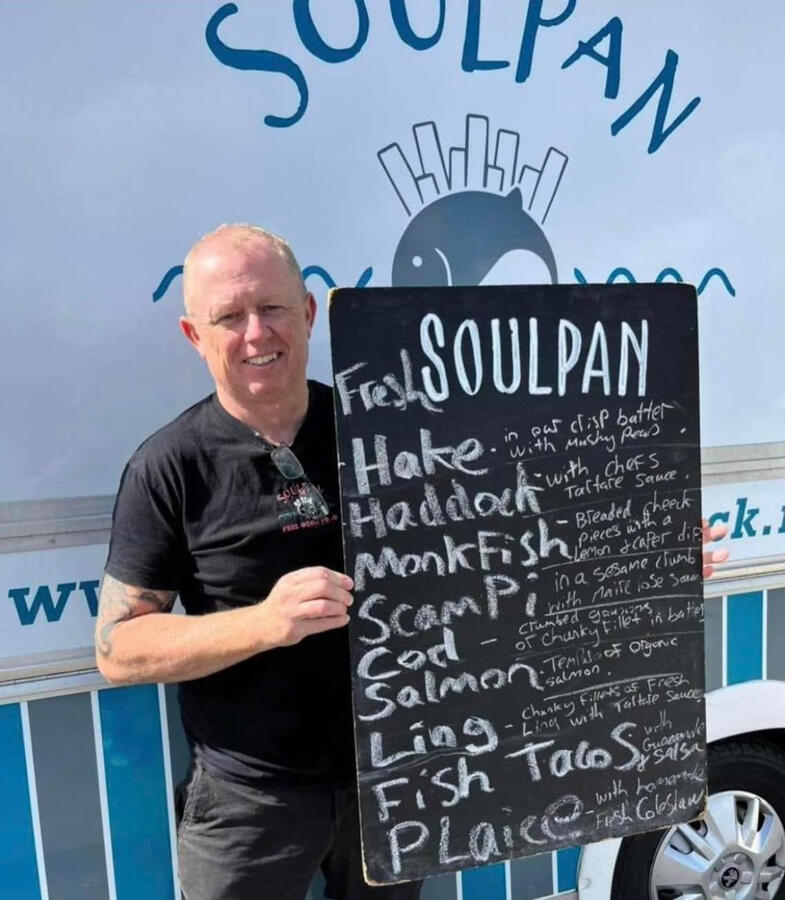 SOULPAN
SOULPAN
Fresh
Hake - in our crisp batter
with Mushy Peas.
Haddock - with chefs
Tartare Sauce.
MonkFish - Breaded cheek
pieces with a
Lemon & caper dip
ScamPi - in a sesame crumb
with Marie rose sauce
Cod - crumbed goujons
or chunky fillet in batter
Salmon - Tempura of organic
salmon.
Ling - chunky fillets of Fresh
Ling with Tartare Sauce
Fish Tacos with
Guacamole
& Salsa
PLaice - with homemade
Fresh Coleslaw
SOULPAN
FEEL GOOD
ww
ck.